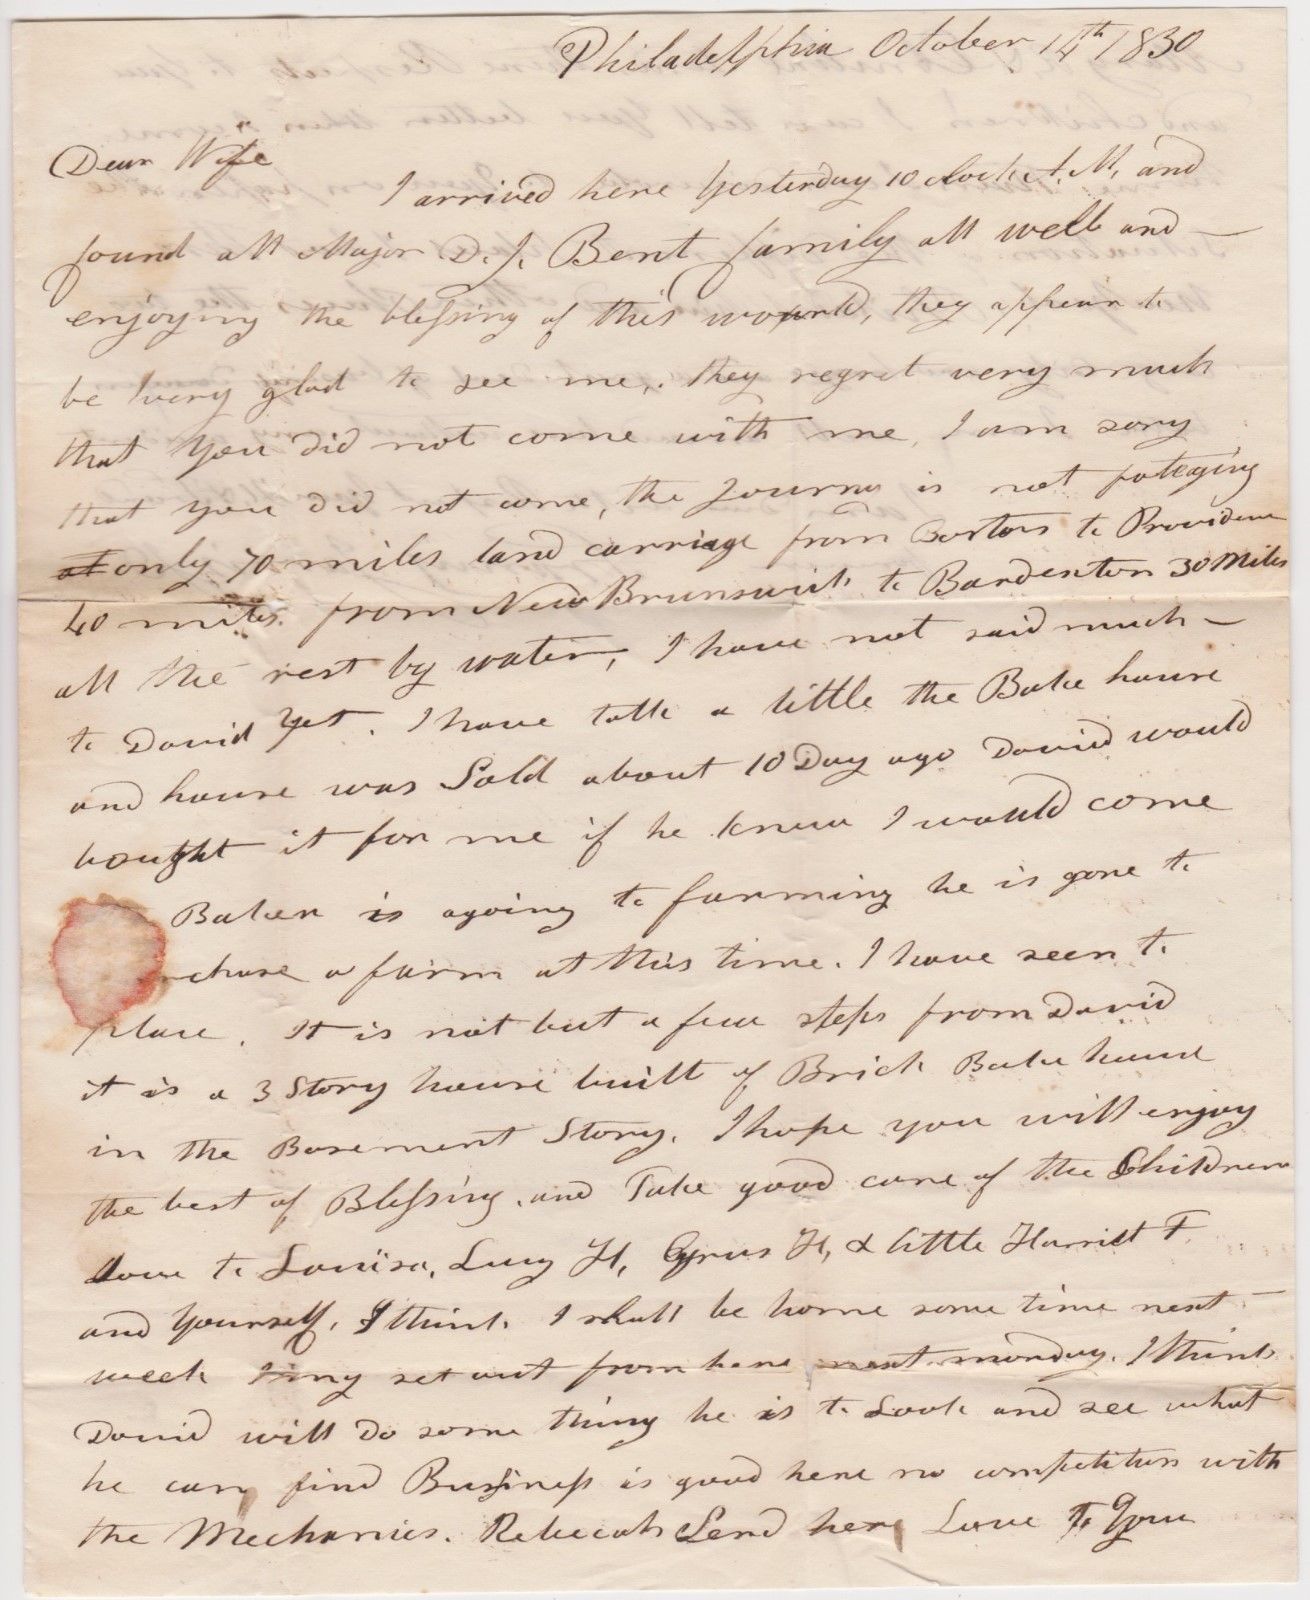 Philadelphia October 14th 1830
Dear Wife
I arrived here Yesterday 10 clock A.M. and
found all Major D. J. Bent family all well and
enjoying the blessing of this world, they appear to
be very glad to see me, they regret very much
that you did not come with me, I am sory
that you did not come, the Journy is not fateging
at only 70 miles land carriage from Boston to Providence
40 miles. from New Brunswick to Bardenton 30 Miles
all the rest by water, I have not said much
to David Yet. I have talk a little the Bake house
and house was Sold about 10 Day ago David would
bought it for me if he knew I would come
Baker is agoing to farming he is gone to
rchase a farm at this time. I have seen te
place. It is not but a few steps from David
it is a 3 Story house built of Brick Bake house
in the Basement Story. I hope you will enjoy
the best of Blessing. and Take good care of the Children
Love to Louisa, Lucy H, Cyrus H, & little Harriet F
and Yourself. I think I shall be home some time next
week set out from here next monday. I think
David will do some thing he is to Look and see what
he can find Business is good here no competitors with
the Mechanics. Rebecah Send her Love To You